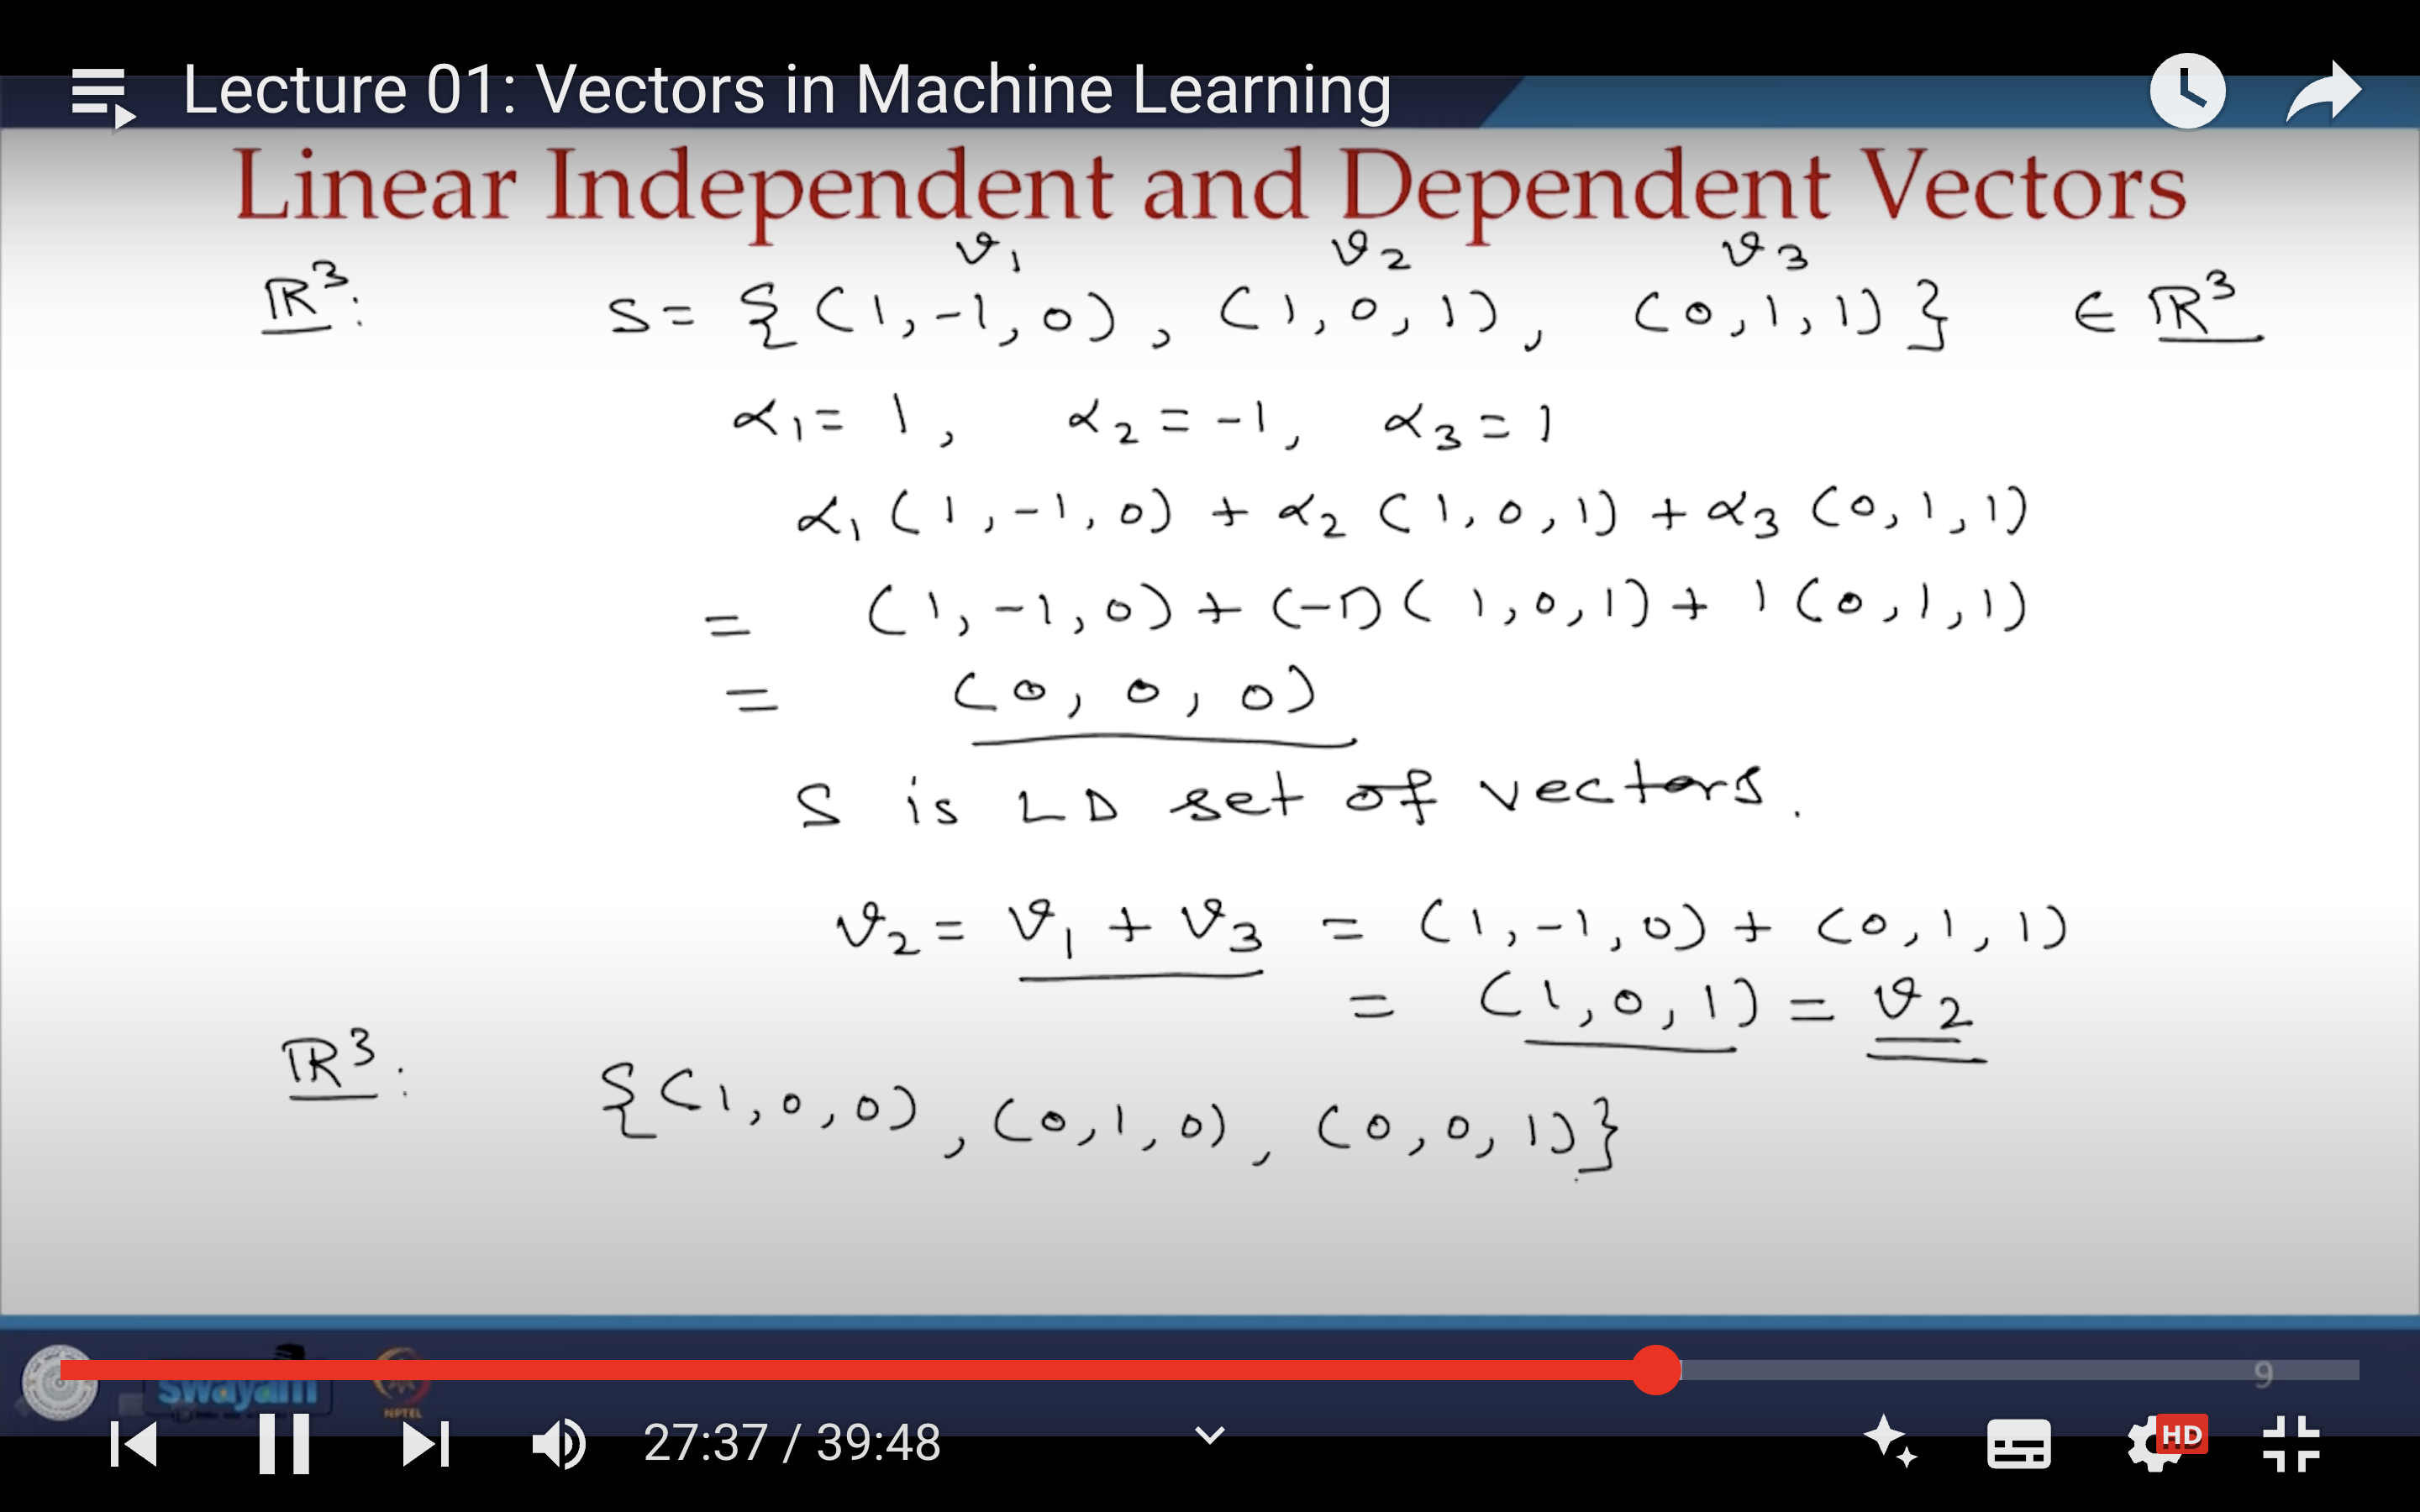 Lecture 01: Vectors in Machine Learning
Linear Independent and Dependent Vectors
v₁ v₂ v₃
ℝ³: S = { (1,-1,0), (1,0,1), (0,1,1) } ∈ ℝ³
α₁ = 1, α₂ = -1, α₃ = 1
α₁ (1,-1,0) + α₂ (1,0,1) + α₃ (0,1,1)
= (1,-1,0) + (-1) (1,0,1) + 1 (0,1,1)
= (0, 0, 0)
S is LD set of vectors.
v₂ = v₁ + v₃ = (1,-1,0) + (0,1,1)
= (1,0,1) = v₂
ℝ³: {(1,0,0), (0,1,0), (0,0,1)}
swayam
NPTEL
9
27:37 / 39:48
HD